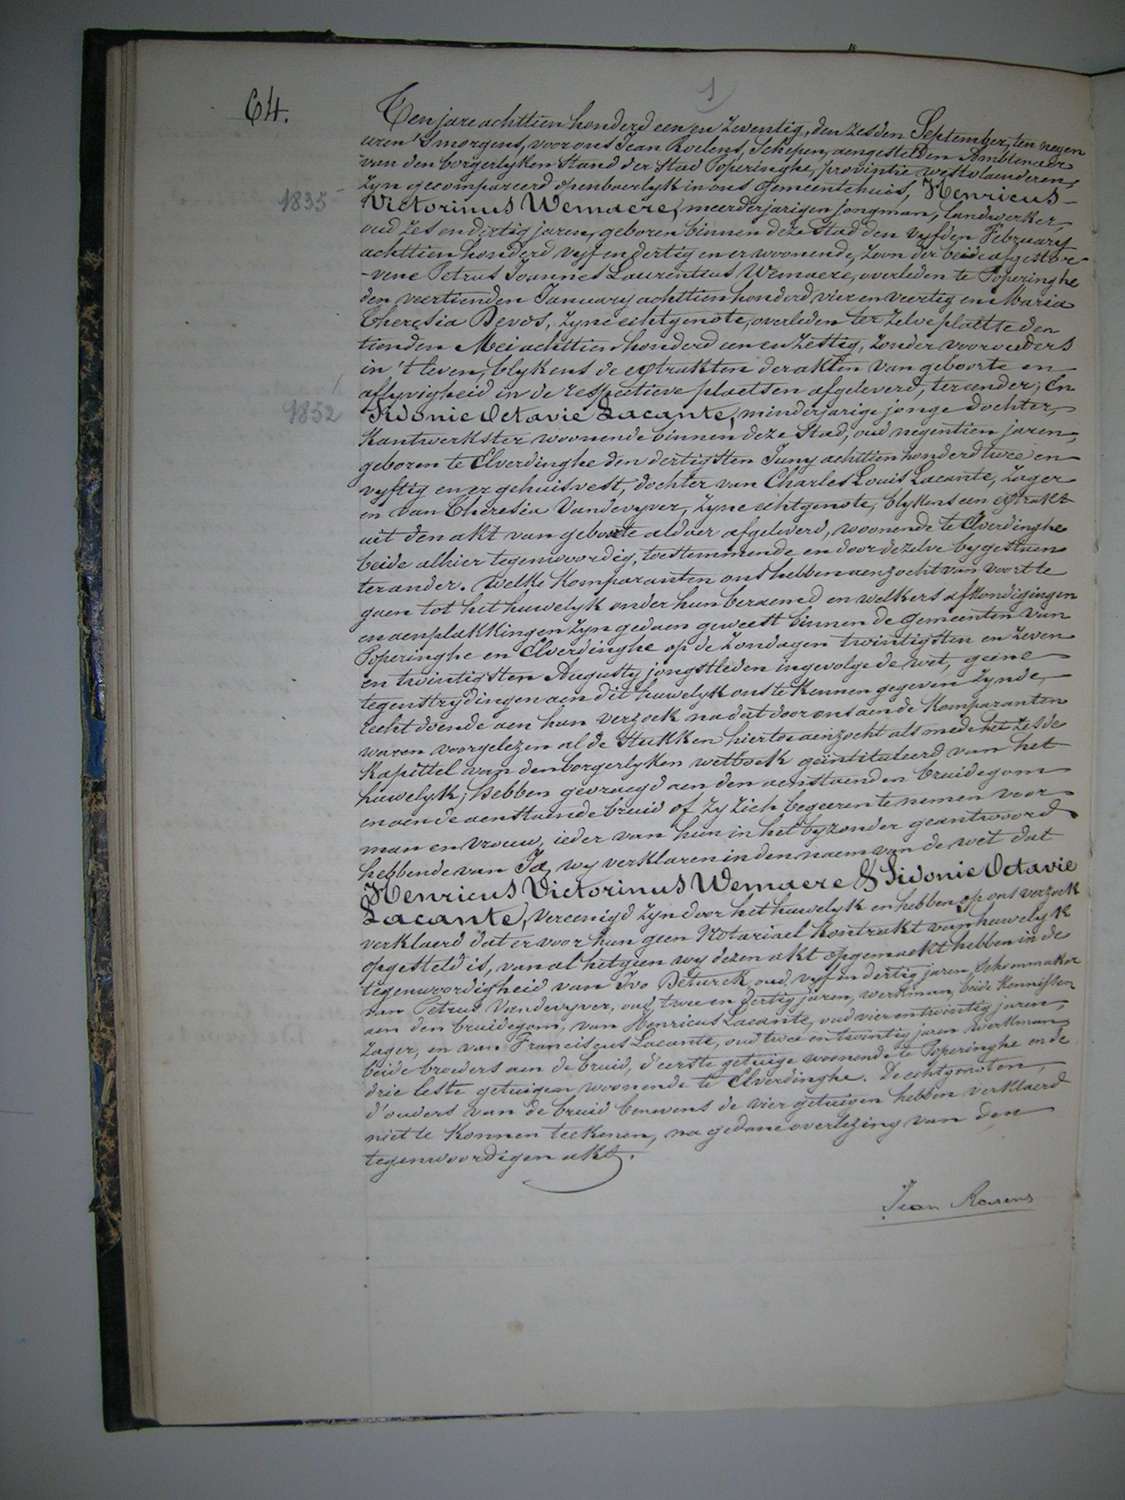 1
64.
Ten jare achttien honderd een en Zeventig, den zesden September, ten negen
uren 's morgens, voor ons Jean Roelens, Schepen, aengestelden Ambtenaer
van den borgerlyken Stand der Stad Poperinghe, provintie westvlaenderen,
zyn gecompareerd openbaerlyk in ons gemeentehuis, Henricus
1835
Victorinus Wemaere, meerderjarigen jongman, landwerker,
oud zes en dertig jaren, geboren binnen deze Stad den vyfden February
achttien honderd vyf en dertig en er woonende, zoon der beide afgestor-
-vene Petrus Joannes Laurentius Wemaere, overleden te Poperinghe
den veertienden January achttien honderd vier en veertig en Maria
Theresia Devos, zyne echtgenote, overleden ter zelve plaetse den
tienden Mei achttien honderd een en zestig, zonder voorouders
in 't leven, blykens de extrakten der akten van geboorte en
aflyvigheid in de respectieve plaetsen afgeleverd, ter eender; En
1852
Sidonie Octavie Lacante, minderjarige jonge dochter,
Kantwerkster woonende binnen deze Stad, oud negentien jaren,
geboren te Elverdinghe den dertigsten Juny achttien honderd twee en
vyftig en er gehuisvest, dochter van Charles Louis Lacante, zager
en van Theresia Vandevyver, zyne echtgenote, blykens een extrakt
uit den akt van geboorte aldaer afgeleverd, woonende te Elverdinghe
beide alhier tegenwoordig, toestemmende, en door dezelve bygestaen
ter ander. Welke Komparanten ons hebben aenzocht van voort te
gaen tot het huwelyk onder hun beraemd en welkers afkondigingen
en aenplakkingen zyn gedaen geweest binnen de gemeenten van
Poperinghe en Elverdinghe op de zondagen twintigsten en zeven
en twintigsten Augusty jongstleden ingevolge de wet, geene
tegenstrydingen aen dit huwelyk ons te kennen gegeven zynde,
recht doende aen hun verzoek na dat door ons aen de Komparanten
waren voorgelezen al de Stukken hiertoe aenzocht als mede het zesde
Kapittel van den borgerlyken wetboek geintituleerd van het
huwelyk; Hebben gevraegd aen den aenstaenden bruidegom
en aen de aenstaende bruid of zy zich begeeren te nemen voor
man en vrouw, ieder van hun in het byzonder geantwoord
hebbende van Ja, wy verklaren in den naem van de wet dat
Henricus Victorinus Wemaere & Sidonie Octavie
Lacante, vereenigd zyn door het huwelyk en hebben op ons verzoek
verklaerd dat er voor hun geen Notariael Kontrakt van huwelyk
opgesteld is, van al hetgeen wy dezen akt opgemaekt hebben in de
tegenwoordigheid van Ivo Deturck oud vyf en dertig jaren, schoenmaker
van Petrus Vandevyver, oud twee en dertig jaren, werkman, beide Kennissen
aen den bruidegom, van Henricus Lacante, oud vier en twintig jaren,
zager, en van Franciscus Lacante, oud twee en twintig jaren werkman,
beide broeders aen de bruid, d'eerste getuige woonende te Poperinghe en de
drie leste getuigen woonende te Elverdinghe. De echtgenoten,
d'ouders van de bruid benevens de vier getuigen hebben verklaerd
niet te konnen teekenen, na gedane overlezing van den
tegenwoordigen akt.
Jean